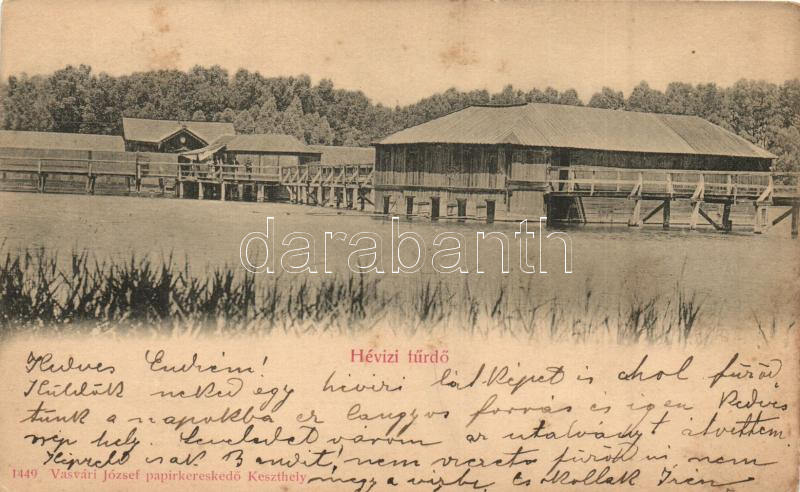 darabanth
Hévizi tűrdő
Kedves Endrém!
Küldök neked egy hévizi látképet is ahol fürőd
tünk a napokba ez langyos forrás és igen kedves
nép hely. Leveledet várom az utalványt átvettem.
Képzeld csak Bandit! nem vezeto fürödni, nem
megy a vizbe, és csókollak Irén
1449 Vasvári József papirkereskedő Keszthely